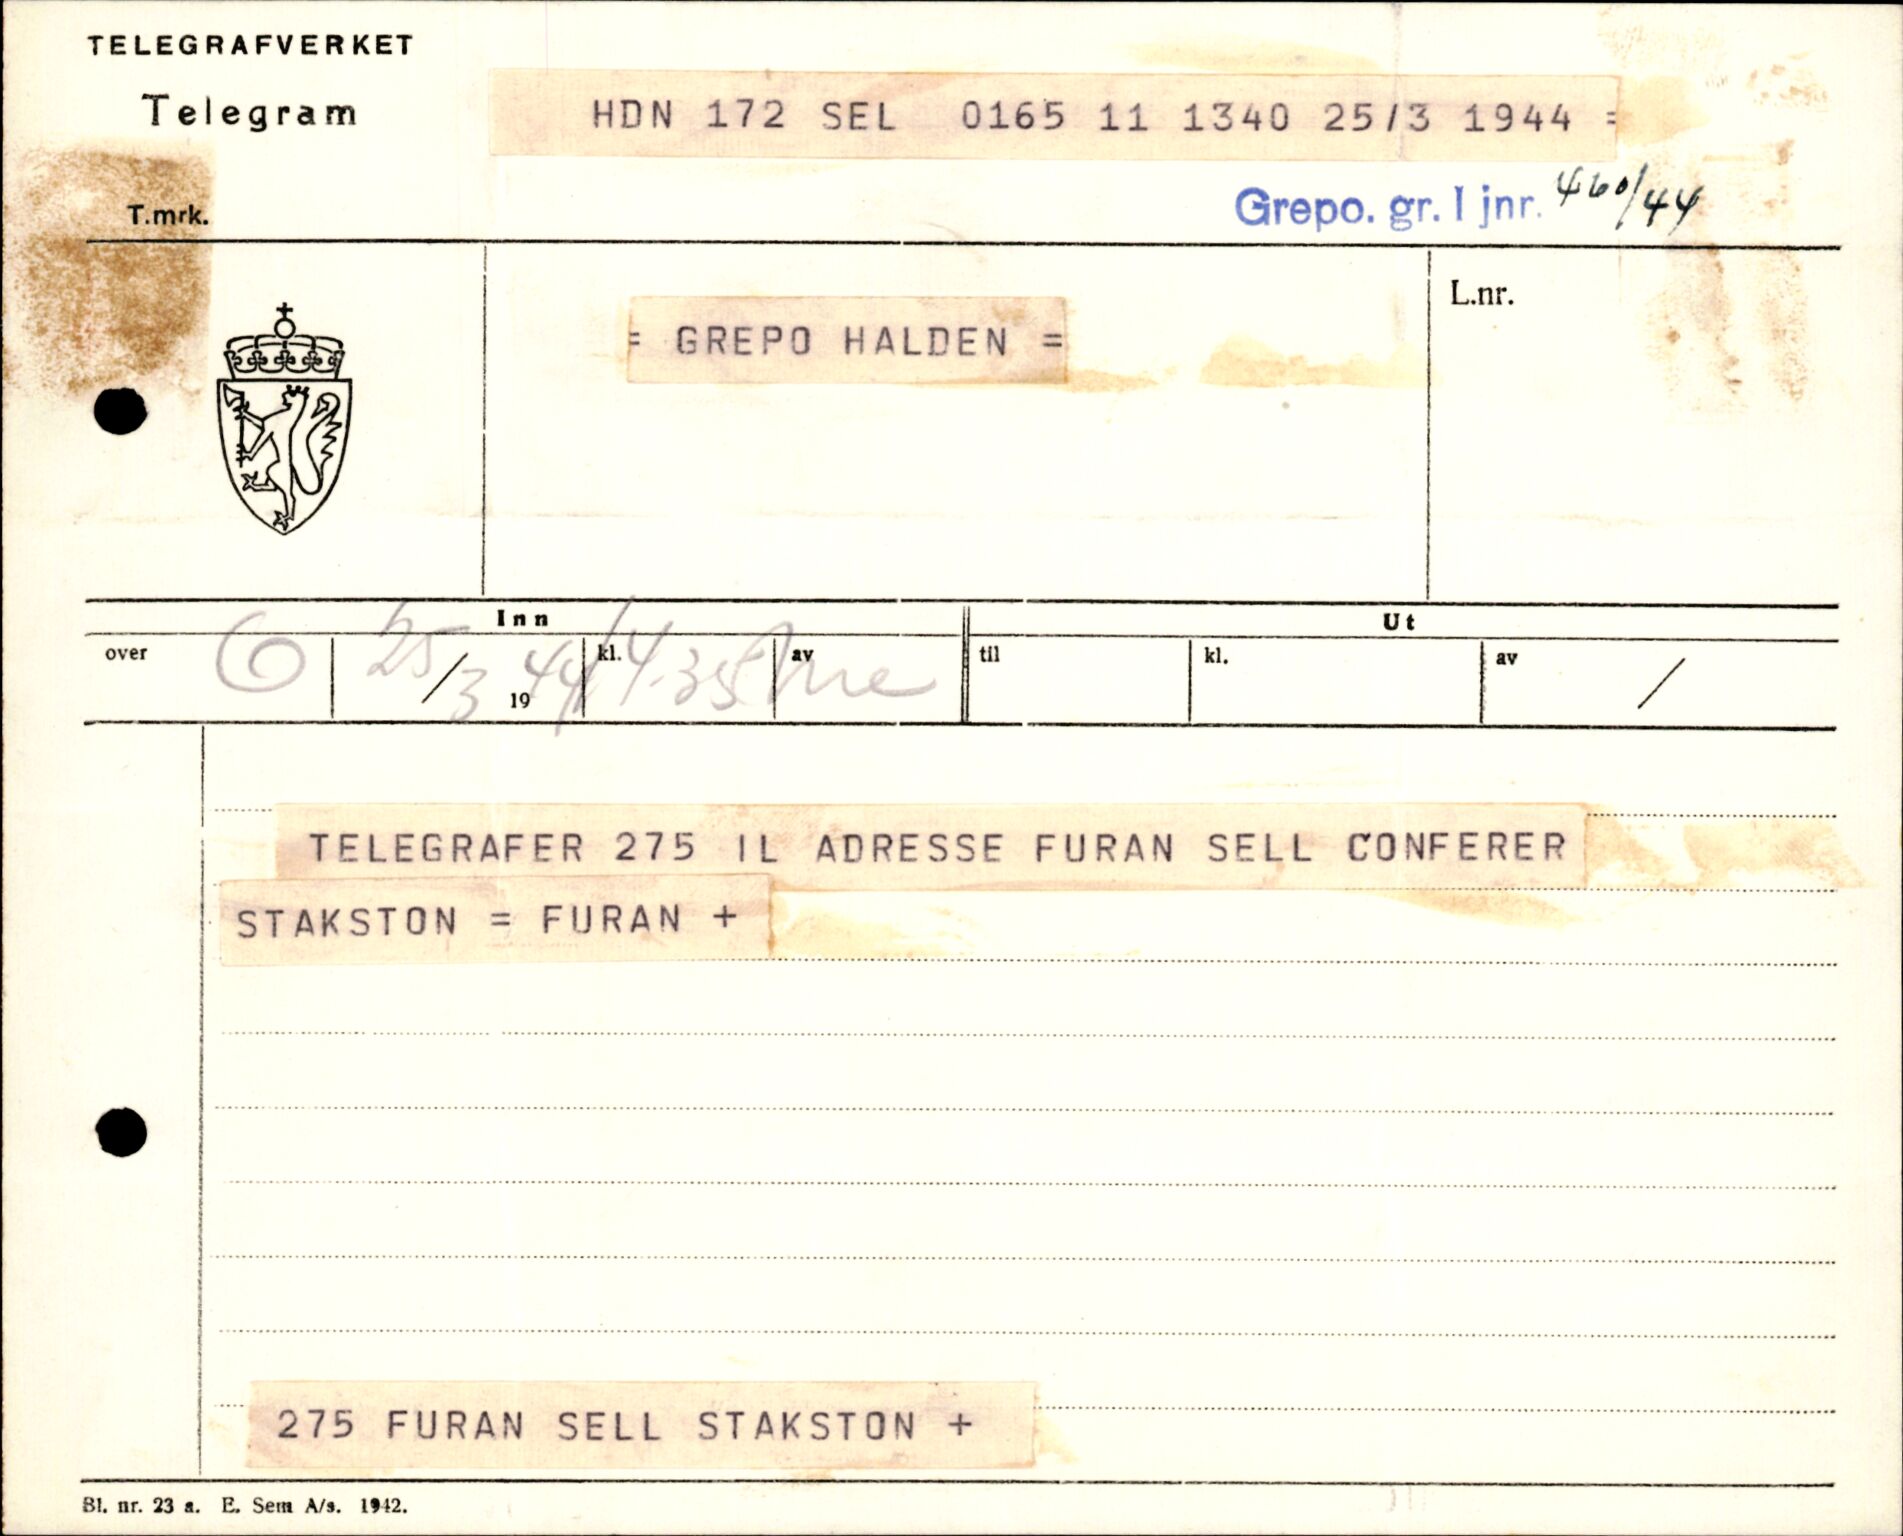 TELEGRAFVERKET
Telegram
HDN 172 SEL 0165 11 1340 25/3 1944 =
T.mrk.
Grepo. gr. I jnr. 460/44
L.nr.
= GREPO HALDEN =
Inn
Ut
over 6 25/3 1944 kl. 14.35 av
til kl. av /
TELEGRAFER 275 IL ADRESSE FURAN SELL CONFERER
STAKSTON = FURAN +
275 FURAN SELL STAKSTON +
Bl. nr. 23 a. E. Sem A/s. 1942.